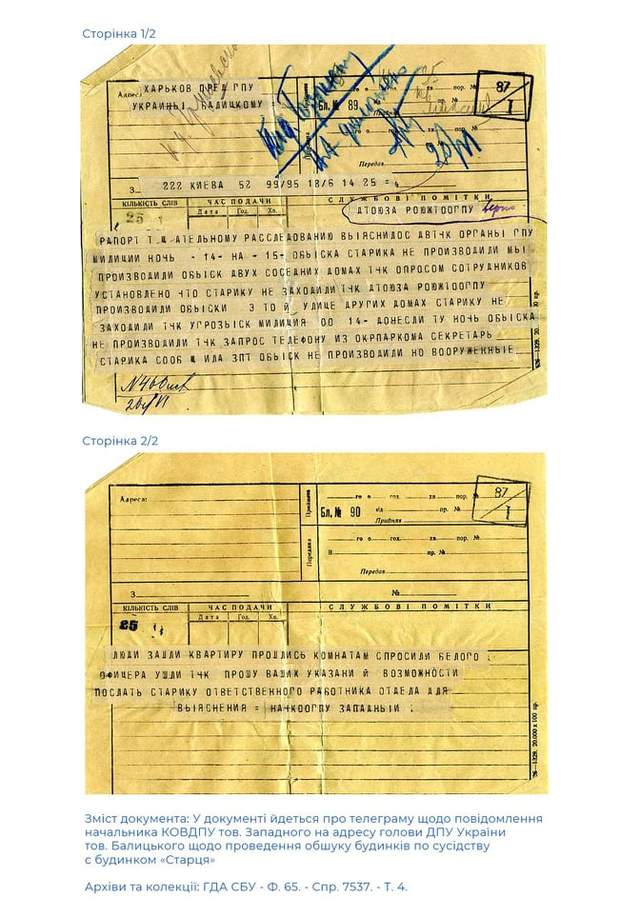 Сторінка 1/2
87
I
Адреса:
ХАРЬКОВ ПРЕД ГПУ
УКРАИНЫ БАЛИЦКОМУ =
Бл. № 89
пор. №
Передав
З
222 КИЕВА 52 99/95 18/6 14 25 = 4
КІЛЬКІСТЬ СЛІВ
ЧАС ПОДАЧИ
СЛУЖБОВІ ПОМІТКИ
Дата Год. Хв.
25
АТОЮЗА РОЮЖТООГПУ
РАПОРТ Т.Щ АТЕЛЬНОМУ РАССЛЕДОВАНИЮ ВЫЯСНИЛОС АВТЧК ОРГАНЫ ГПУ
МИЛИЦИИ НОЧЬ - 14- НА - 15- ОБЫСКА СТАРИКА НЕ ПРОИЗВОДИЛИ МЫ
ПРОИЗВОДИЛИ ОБЫСК ДВУХ СОСЕДНИХ ДОМАХ ТЧК ОПРОСОМ СОТРУДНИКОВ
УСТАНОВЛЕНО ЧТО СТАРИКУ НЕ ЗАХОДИЛИ ТЧК АТОЮЗА РОЮЖТООГПУ
ПРОИЗВОДИЛИ ОБЫСКИ ЭТОЙ УЛИЦЕ ДРУГИХ ДОМАХ СТАРИКУ НЕ
ЗАХОДИЛИ ТЧК УГРОЗЫСК МИЛИЦИЯ ОО 14- ДОНЕСЛИ ТУ НОЧЬ ОБЫСКА
НЕ ПРОИЗВОДИЛИ ТЧК ЗАПРОС ТЕЛЕФОНУ ИЗ ОКРПАРКОМА СЕКРЕТАРЬ
СТАРИКА СООБ Щ ИЛА ЗПТ ОБЫСК НЕ ПРОИЗВОДИЛИ НО ВООРУЖЕННЫЕ
Сторінка 2/2
87
I
Адреса:
Прийнято
го о год. хв. пор. №
Бл. № 90 від пр. №
Прийняв
Передача
го о год. хв. пор. №
В пр. №
Передав
З №
КІЛЬКІСТЬ СЛІВ
ЧАС ПОДАЧИ
СЛУЖБОВІ ПОМІТКИ
Дата Год. Хв.
25
ЛЮДИ ЗАШЛИ КВАРТИРУ ПРОШЛИСЬ КОМНАТАМ СПРОСИЛИ БЕЛОГО
ОФИЦЕРА УШЛИ ТЧК ПРОШУ ВАШИХ УКАЗАНИ Й ВОЗМОЖНОСТИ
ПОСЛАТЬ СТАРИКУ ОТВЕТСТВЕННОГО РАБОТНИКА ОТДЕЛА ДЛЯ
ВЫЯСНЕНИЯ = НАЧКООГПУ ЗАПАДНЫЙ
Зміст документа: У документі йдеться про телеграму щодо повідомлення
начальника КОВДПУ тов. Западного на адресу голови ДПУ України
тов. Балицького щодо проведення обшуку будинків по сусідству
с будинком «Старця»
Архіви та колекції: ГДА СБУ - Ф. 65. - Спр. 7537. - Т. 4.